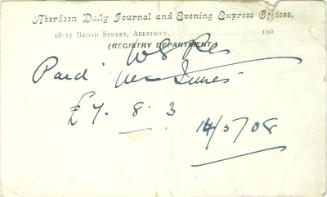 Aberdeen Daily Journal and Evening Express Offices,
18-22 BROAD STREET, ABERDEEN, 190
(REGISTRY DEPARTMENT.)
Paid
£7. 8. 3
14/5/08